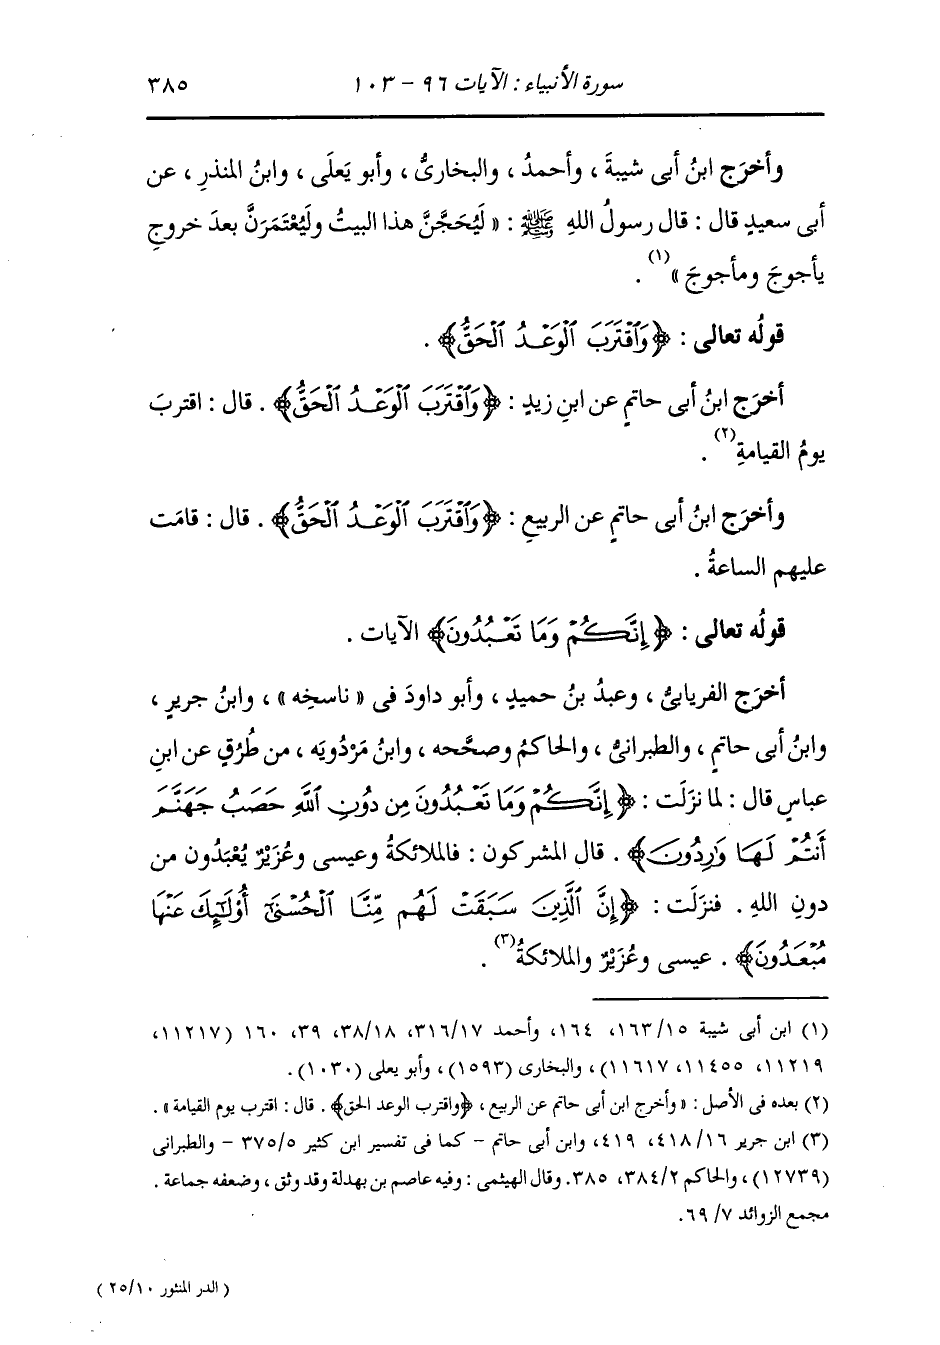 سورة الأنبياء : الآيات ٩٦ - ١٠٣ ٣٨٥
وأخرَج ابنُ أبى شيبةَ ، وأحمدُ ، والبخارىُّ ، وأبو يَعلَى ، وابنُ المنذرِ ، عن
أبى سعيدٍ قال : قال رسولُ اللهِ ﷺ : « لَيُحَجَّنَّ هذا البيتُ ولَيُعْتَمَرَنَّ بعدَ خروجِ
يأجوجَ ومأجوجَ »(١) .
قولُه تعالى : ﴿وَٱقْتَرَبَ ٱلْوَعْدُ ٱلْحَقُّ﴾ .
أخرَج ابنُ أبى حاتمٍ عن ابنِ زيدٍ : ﴿وَٱقْتَرَبَ ٱلْوَعْدُ ٱلْحَقُّ﴾ . قال : اقتربَ
يومُ القيامةِ(٢) .
وأخرَج ابنُ أبى حاتمٍ عن الربيعِ : ﴿وَٱقْتَرَبَ ٱلْوَعْدُ ٱلْحَقُّ﴾ . قال : قامَت
عليهم الساعةُ .
قولُه تعالى : ﴿إِنَّكُمْ وَمَا تَعْبُدُونَ﴾ الآيات .
أخرَج الفريابىُّ ، وعبدُ بنُ حميدٍ ، وأبو داودَ فى « ناسخِه » ، وابنُ جريرٍ ،
وابنُ أبى حاتمٍ ، والطبرانىُّ ، والحاكمُ وصحَّحه ، وابنُ مَرْدُويَه ، من طُرُقٍ عن ابنِ
عباسٍ قال : لما نزَلَت : ﴿إِنَّكُمْ وَمَا تَعْبُدُونَ مِن دُونِ ٱللَّهِ حَصَبُ جَهَنَّمَ
أَنتُمْ لَهَا وَٰرِدُونَ﴾ . قال المشركون : فالملائكةُ وعيسى وعُزَيْرٌ يُعْبَدُون من
دونِ اللهِ . فنزَلَت : ﴿إِنَّ ٱلَّذِينَ سَبَقَتْ لَهُم مِّنَّا ٱلْحُسْنَىٰٓ أُوْلَٰٓئِكَ عَنْهَا
مُبْعَدُونَ﴾ . عيسى وعُزَيْرٌ والملائكةُ(٣) .
(١) ابن أبى شيبة ١٦٣/١٥، ١٦٤، وأحمد ٣١٦/١٧، ٣٨/١٨، ٣٩، ١٦٠ (١١٢١٧،
١١٢١٩، ١١٤٥٥، ١١٦١٧)، والبخارى (١٥٩٣)، وأبو يعلى (١٠٣٠).
(٢) بعده فى الأصل : « وأخرج ابن أبى حاتم عن الربيع ، ﴿واقترب الوعد الحق﴾ . قال : اقترب يوم القيامة » .
(٣) ابن جرير ٤١٨/١٦، ٤١٩، وابن أبى حاتم - كما فى تفسير ابن كثير ٣٧٥/٥ - والطبرانى
(١٢٧٣٩)، والحاكم ٣٨٤/٢، ٣٨٥. وقال الهيثمى : وفيه عاصم بن بهدلة وقد وثق ، وضعفه جماعة .
مجمع الزوائد ٦٩/٧.
( الدر المنثور ٢٥/١٠ )